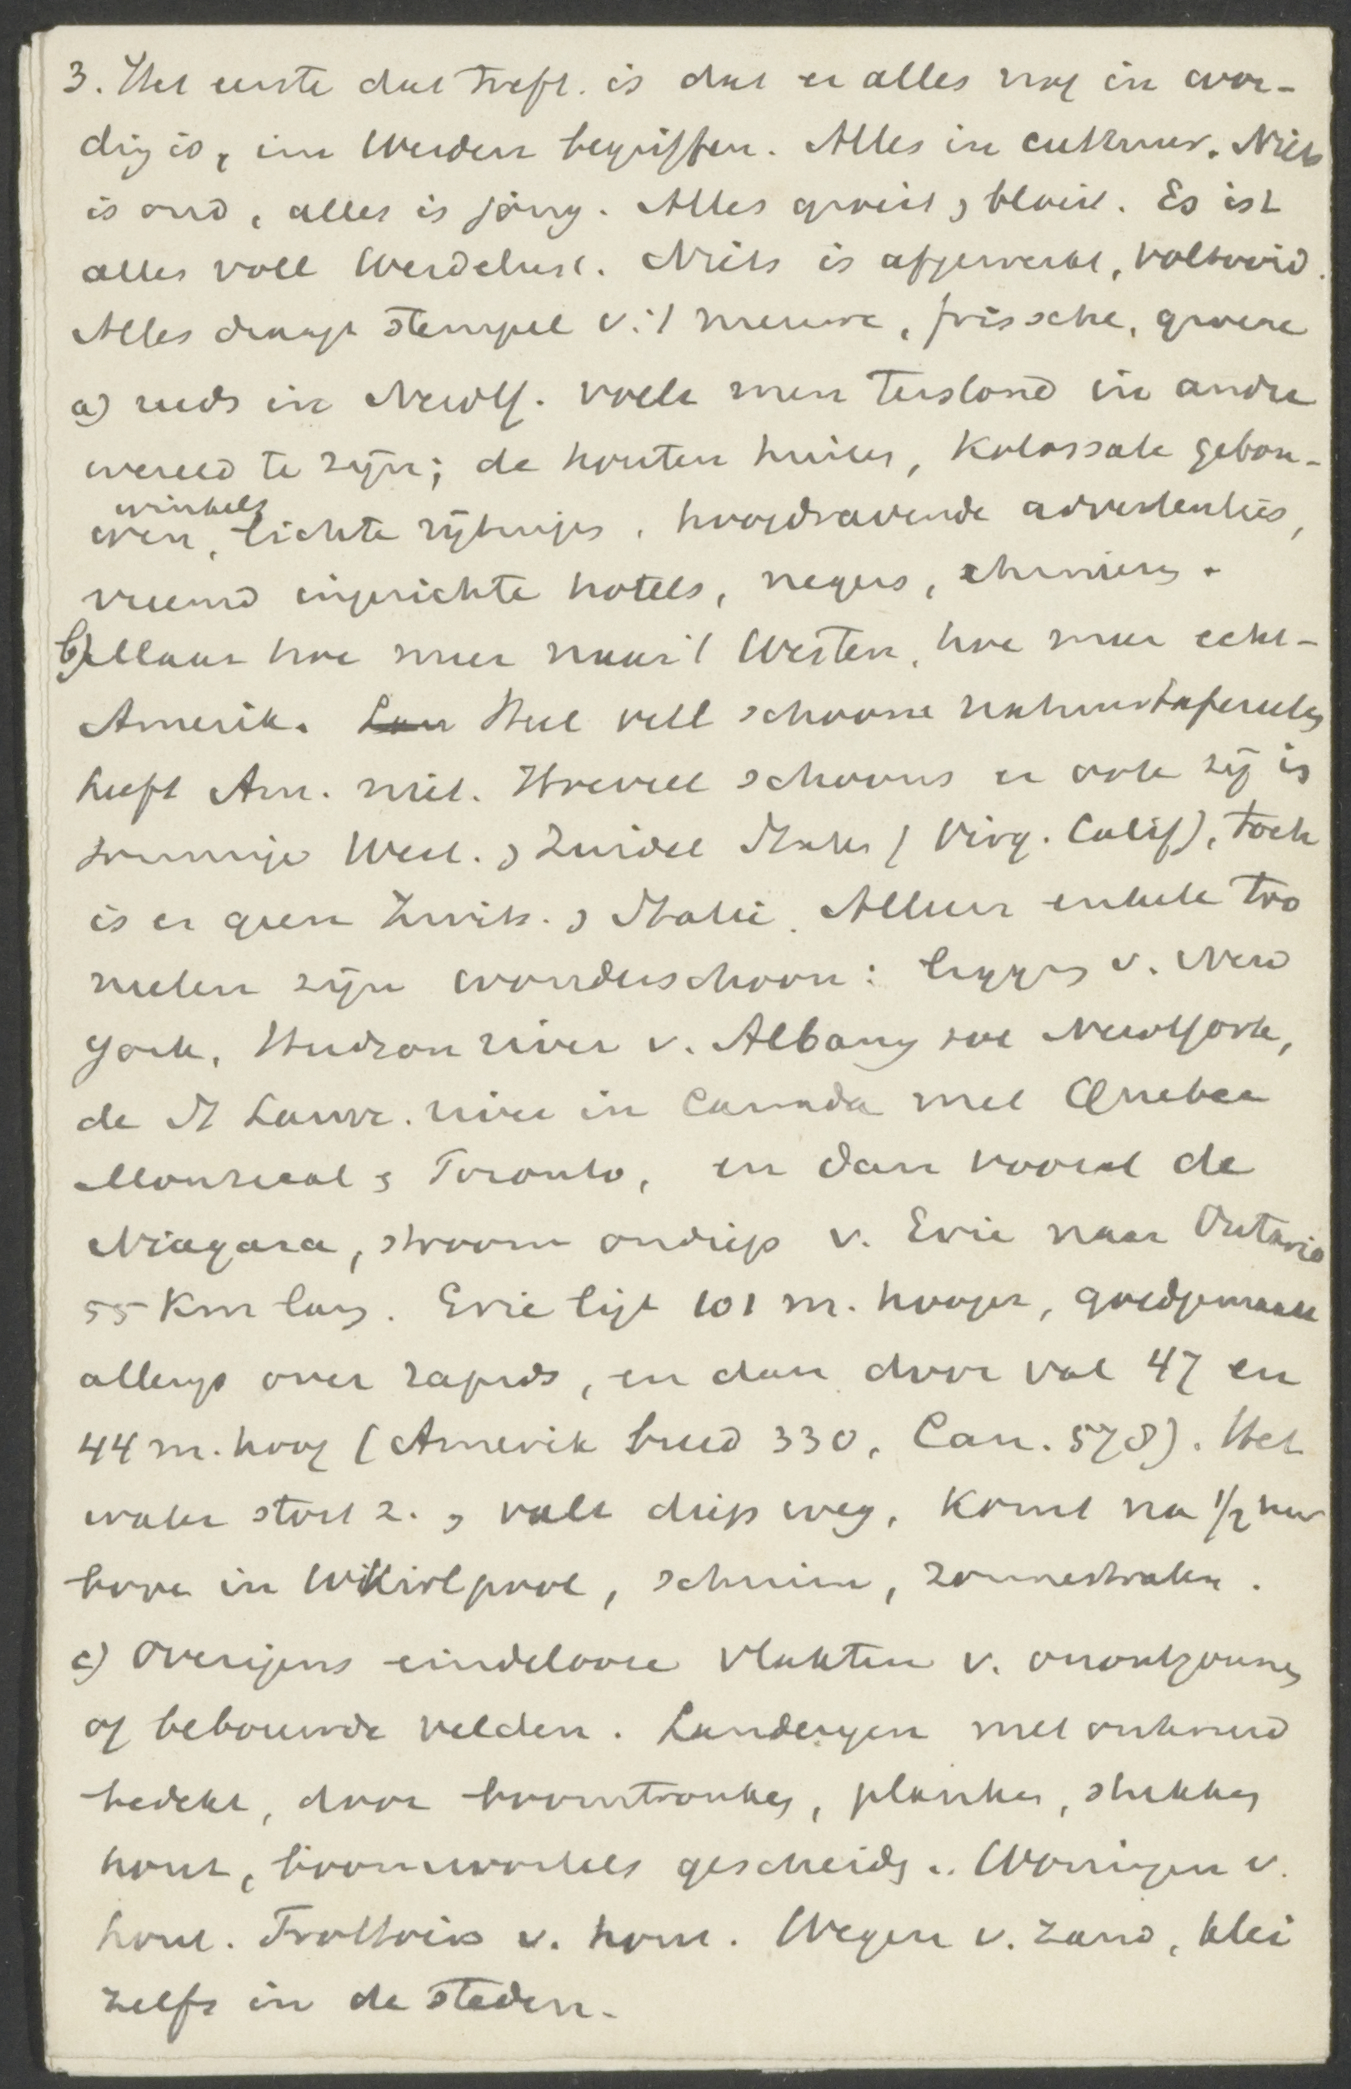 3. Het eerste dat treft. is dat er alles nog in wor-
ding is, im Werden begriffen. Alles in cultuur. Niets
is oud, alles is jong. Alles groeit, bloeit. Es ist
alles voll Werdelust. Niets is afgewerkt, voltooid.
Alles draagt stempel v. 't nieuwe, frissche, groene
a) reeds in NewY. voelt men terstond in andre
wereld te zijn; de houten huizen, kolossale gebou-
wen, winkels, lichte rijtuigjes, hoogdravende advertenties,
vreemd ingerichte hotels, negers, chineezen.
b) Maar hoe meer naar 't Westen, hoe meer echt-
Amerik. Heel veel schoone natuurtafereelen
heeft Am. niet. Hoeveel schoons er ook zij in
sommige West. & Zuidel Staten (Virg. Calif), toch
is er geen Zwits. & Italië. Alleen enkele too
neelen zijn wonderschoon: ligging v. New
York, Hudson river v. Albany tot NewYork,
de St Lawr. river in Canada met Quebec
Montreal & Toronto, en dan vooral de
Niagara, stroom ondiep v. Erie naar Ontario
55 Km lang. Erie ligt 101 m. hooger, goedgemaakt
allengs over rapids, en dan door val 47 en
44 m. hoog (Amerik breed 330, Can. 578). Het
water stort z. & valt diep weg, komt na 1/2 uur
boven in Whirlpool, schuim, zonnestralen.
c) Overigens eindelooze vlakten v. onontgonnen
of bebouwde velden. Landerijen met onkruid
bedekt, door boomtronken, planken, stukken
hout, boomwortels gescheiden. Woningen v.
hout. Trottoirs v. hout. Wegen v. zand, klei
zelfs in de steden.